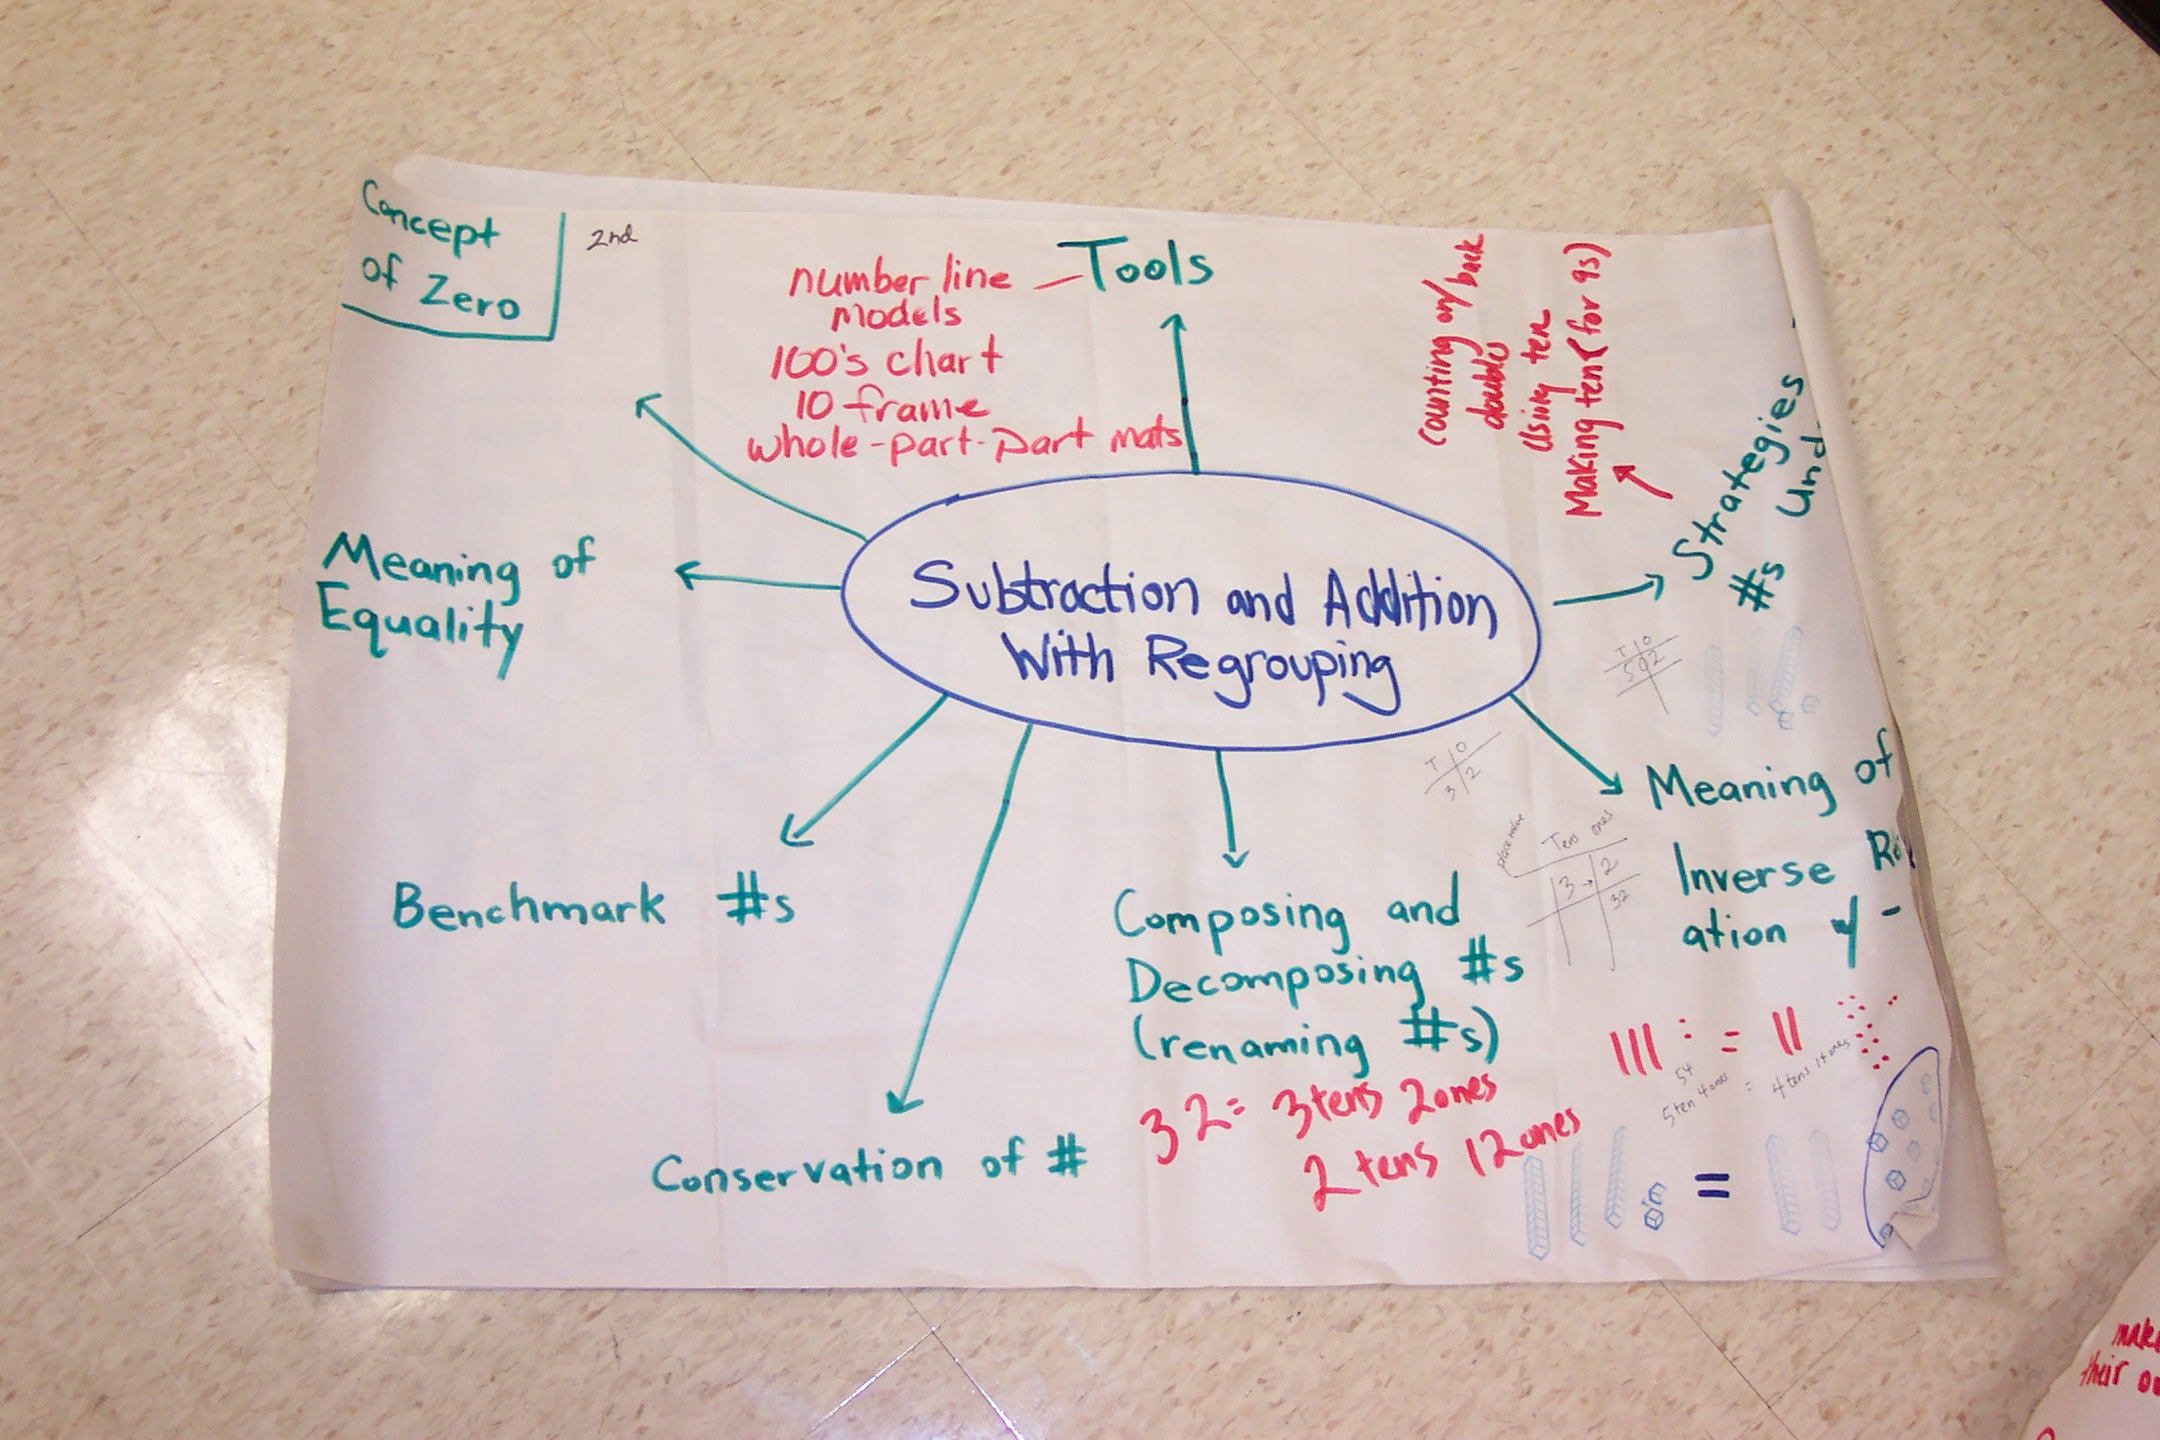 Concept
of Zero
2nd
Tools
number line
models
100's chart
10 frame
whole-part-part mats
counting on/back
doubles
Using ten
Making ten (for 9s)
Strategies
#s
Meaning of
Equality
Subtraction and Addition
With Regrouping
T O
3 2
place value
Tens ones
3 2
32
Meaning of
Inverse
ation w/ -
Benchmark #s
Composing and
Decomposing #s
(renaming #s)
32 = 3 tens 2 ones
2 tens 12 ones
=
54
5 ten 4 ones = 4 tens 14 ones
=
Conservation of #
make
their